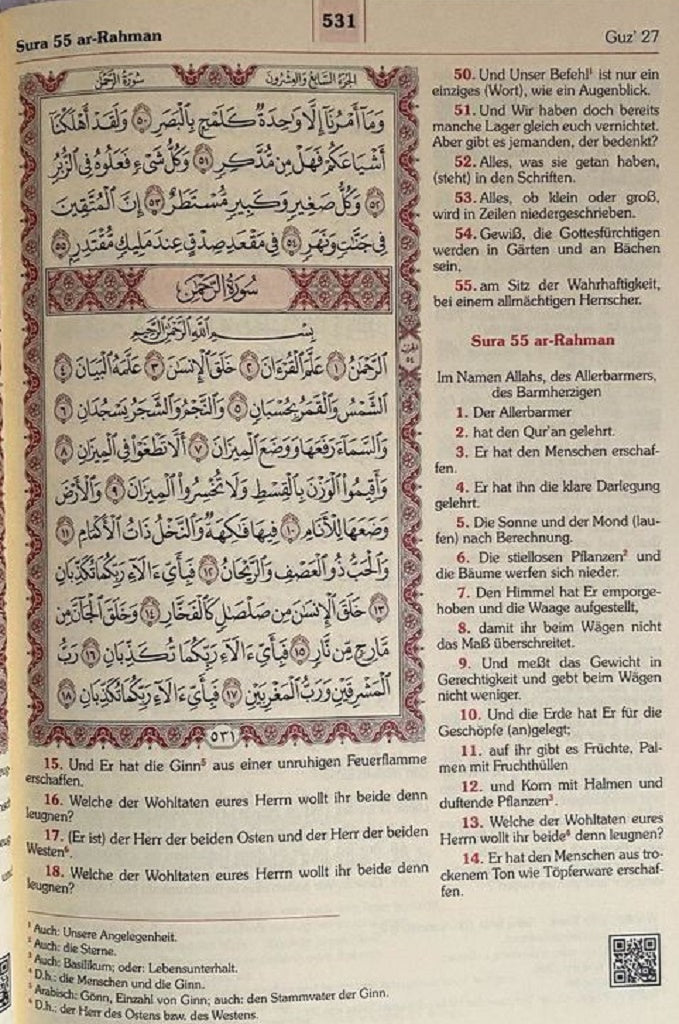 531
Sura 55 ar-Rahman
Guz' 27
سورة الرحمن
الجزء السابع والعشرون
وَمَآ أَمْرُنَآ إِلَّا وَٰحِدَةٌ كَلَمْحٍۭ بِٱلْبَصَرِ ٥٠ وَلَقَدْ أَهْلَكْنَآ
أَشْيَاعَكُمْ فَهَلْ مِن مُّدَّكِرٍ ٥١ وَكُلُّ شَىْءٍ فَعَلُوهُ فِى ٱلزُّبُرِ
٥٢ وَكُلُّ صَغِيرٍ وَكَبِيرٍ مُّسْتَطَرٌ ٥٣ إِنَّ ٱلْمُتَّقِينَ
فِى جَنَّٰتٍ وَنَهَرٍ ٥٤ فِى مَقْعَدِ صِدْقٍ عِندَ مَلِيكٍ مُّقْتَدِرٍۭ ٥٥
سُورَةُ الرَّحْمَٰن
بِسْمِ ٱللَّهِ ٱلرَّحْمَٰنِ ٱلرَّحِيمِ
ٱلرَّحْمَٰنُ ١ عَلَّمَ ٱلْقُرْءَانَ ٢ خَلَقَ ٱلْإِنسَٰنَ ٣ عَلَّمَهُ ٱلْبَيَانَ ٤
ٱلشَّمْسُ وَٱلْقَمَرُ بِحُسْبَانٍ ٥ وَٱلنَّجْمُ وَٱلشَّجَرُ يَسْجُدَانِ ٦
وَٱلسَّمَآءَ رَفَعَهَا وَوَضَعَ ٱلْمِيزَانَ ٧ أَلَّا تَطْغَوْا۟ فِى ٱلْمِيزَانِ ٨
وَأَقِيمُوا۟ ٱلْوَزْنَ بِٱلْقِسْطِ وَلَا تُخْسِرُوا۟ ٱلْمِيزَانَ ٩ وَٱلْأَرْضَ
وَضَعَهَا لِلْأَنَامِ ١٠ فِيهَا فَٰكِهَةٌ وَٱلنَّخْلُ ذَاتُ ٱلْأَكْمَامِ ١١
وَٱلْحَبُّ ذُو ٱلْعَصْفِ وَٱلرَّيْحَانُ ١٢ فَبِأَىِّ ءَالَآءِ رَبِّكُمَا تُكَذِّبَانِ
١٣ خَلَقَ ٱلْإِنسَٰنَ مِن صَلْصَٰلٍ كَٱلْفَخَّارِ ١٤ وَخَلَقَ ٱلْجَآنَّ مِن
مَّارِجٍ مِّن نَّارٍ ١٥ فَبِأَىِّ ءَالَآءِ رَبِّكُمَا تُكَذِّبَانِ ١٦ رَبُّ
ٱلْمَشْرِقَيْنِ وَرَبُّ ٱلْمَغْرِبَيْنِ ١٧ فَبِأَىِّ ءَالَآءِ رَبِّكُمَا تُكَذِّبَانِ ١٨
٥٣١
50. Und Unser Befehl¹ ist nur ein
einziges (Wort), wie ein Augenblick.
51. Und Wir haben doch bereits
manche Lager gleich euch vernichtet.
Aber gibt es jemanden, der bedenkt?
52. Alles, was sie getan haben,
(steht) in den Schriften.
53. Alles, ob klein oder groß,
wird in Zeilen niedergeschrieben.
54. Gewiß, die Gottesfürchtigen
werden in Gärten und an Bächen
sein,
55. am Sitz der Wahrhaftigkeit,
bei einem allmächtigen Herrscher.
Sura 55 ar-Rahman
Im Namen Allahs, des Allerbarmers,
des Barmherzigen
1. Der Allerbarmer
2. hat den Qur'an gelehrt.
3. Er hat den Menschen erschaf-
fen.
4. Er hat ihn die klare Darlegung
gelehrt.
5. Die Sonne und der Mond (lau-
fen) nach Berechnung.
6. Die stiellosen Pflanzen² und
die Bäume werfen sich nieder.
7. Den Himmel hat Er emporge-
hoben und die Waage aufgestellt,
8. damit ihr beim Wägen nicht
das Maß überschreitet.
9. Und meßt das Gewicht in
Gerechtigkeit und gebt beim Wägen
nicht weniger.
10. Und die Erde hat Er für die
Geschöpfe (an)gelegt;
11. auf ihr gibt es Früchte, Pal-
men mit Fruchthüllen
12. und Korn mit Halmen und
duftende Pflanzen³.
13. Welche der Wohltaten eures
Herrn wollt ihr beide⁴ denn leugnen?
14. Er hat den Menschen aus tro-
ckenem Ton wie Töpferware erschaf-
fen.
15. Und Er hat die Ginn⁵ aus einer unruhigen Feuerflamme
erschaffen.
16. Welche der Wohltaten eures Herrn wollt ihr beide denn
leugnen?
17. (Er ist) der Herr der beiden Osten und der Herr der beiden
Westen⁶.
18. Welche der Wohltaten eures Herrn wollt ihr beide denn
leugnen?
¹ Auch: Unsere Angelegenheit.
² Auch: die Sterne.
³ Auch: Basilikum; oder: Lebensunterhalt.
⁴ D.h.: die Menschen und die Ginn.
⁵ Arabisch: Gönn, Einzahl von Ginn; auch: den Stammvater der Ginn.
⁶ D.h.: der Herr des Ostens bzw. des Westens.